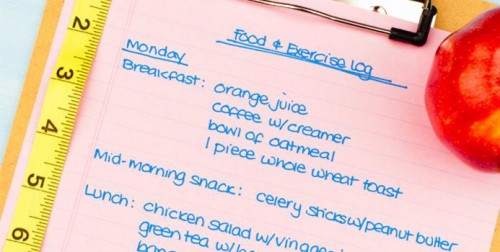 Food & Exercise Log
Monday
Breakfast: orange juice
coffee w/creamer
bowl of oatmeal
1 piece whole wheat toast
Mid-morning snack: celery sticks w/peanut butter
Lunch: chicken salad w/
green tea w/
2
3
4
5
6